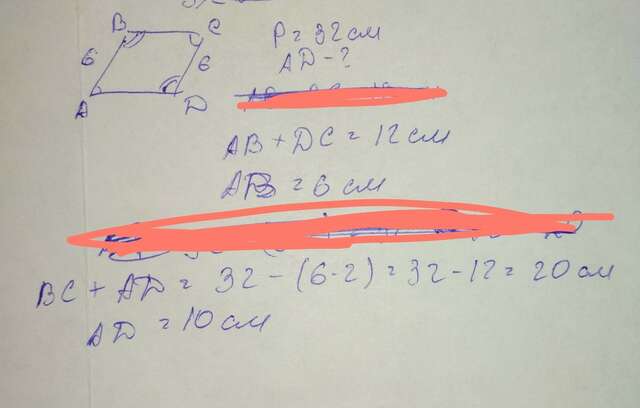 B C
P = 32 см
6 6
AD - ?
A D
AB + DC = 12 см
AB = 6 см
BC + AD = 32 - (6·2) = 32 - 12 = 20 см
AD = 10 см